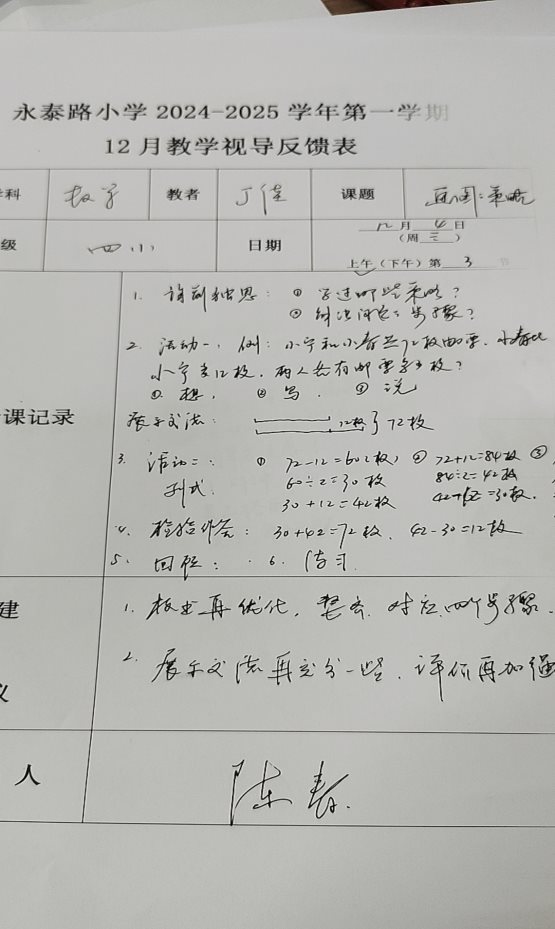 永泰路小学 2024-2025 学年第一学期
12 月教学视导反馈表
学科 数学 教者 丁佳 课题 画图:策略
级 四(1) 日期 12 月 4 日
(周 三 )
上午(下午)第 3 节
听课记录
1. 课前独思: ① 学过哪些策略?
② 解决问题的步骤?
2. 活动一、例: 小宁和小春共72枚邮票,小春比
小宁多12枚,两人各有邮票多少枚?
① 想, ② 写. ③ 说
展示交流: 12枚 } 72枚
3. 活动二: ① 72-12=60(枚) ② 72+12=84枚 ③
列式. 60÷2=30枚 84÷2=42枚
30+12=42枚 42-12=30枚.
4. 检验作答: 30+42=72枚. 42-30=12枚
5. 回顾: 6. 练习.
建
议
1. 板书再优化, 整齐. 对应四个步骤.
2. 展示交流再充分一些. 评价再加强
人 陈春.